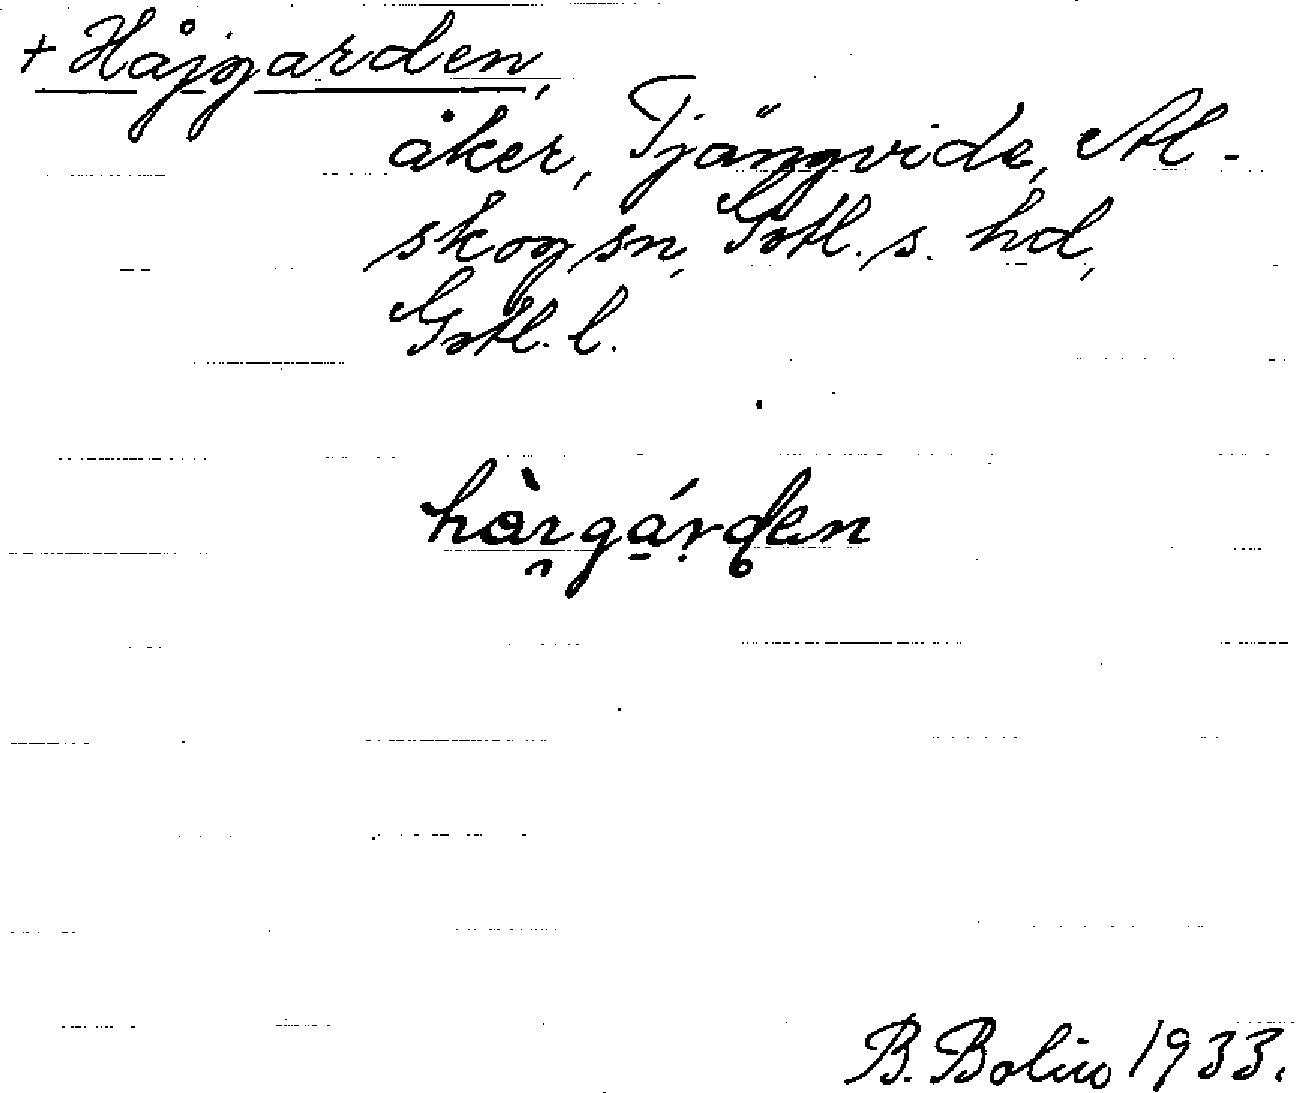 + Håjgarden,
åker, Tjängvide, Al-
skog sn, Gotl. s. hd,
Gotl. l.
hàrgárden
B. Bolin 1933.